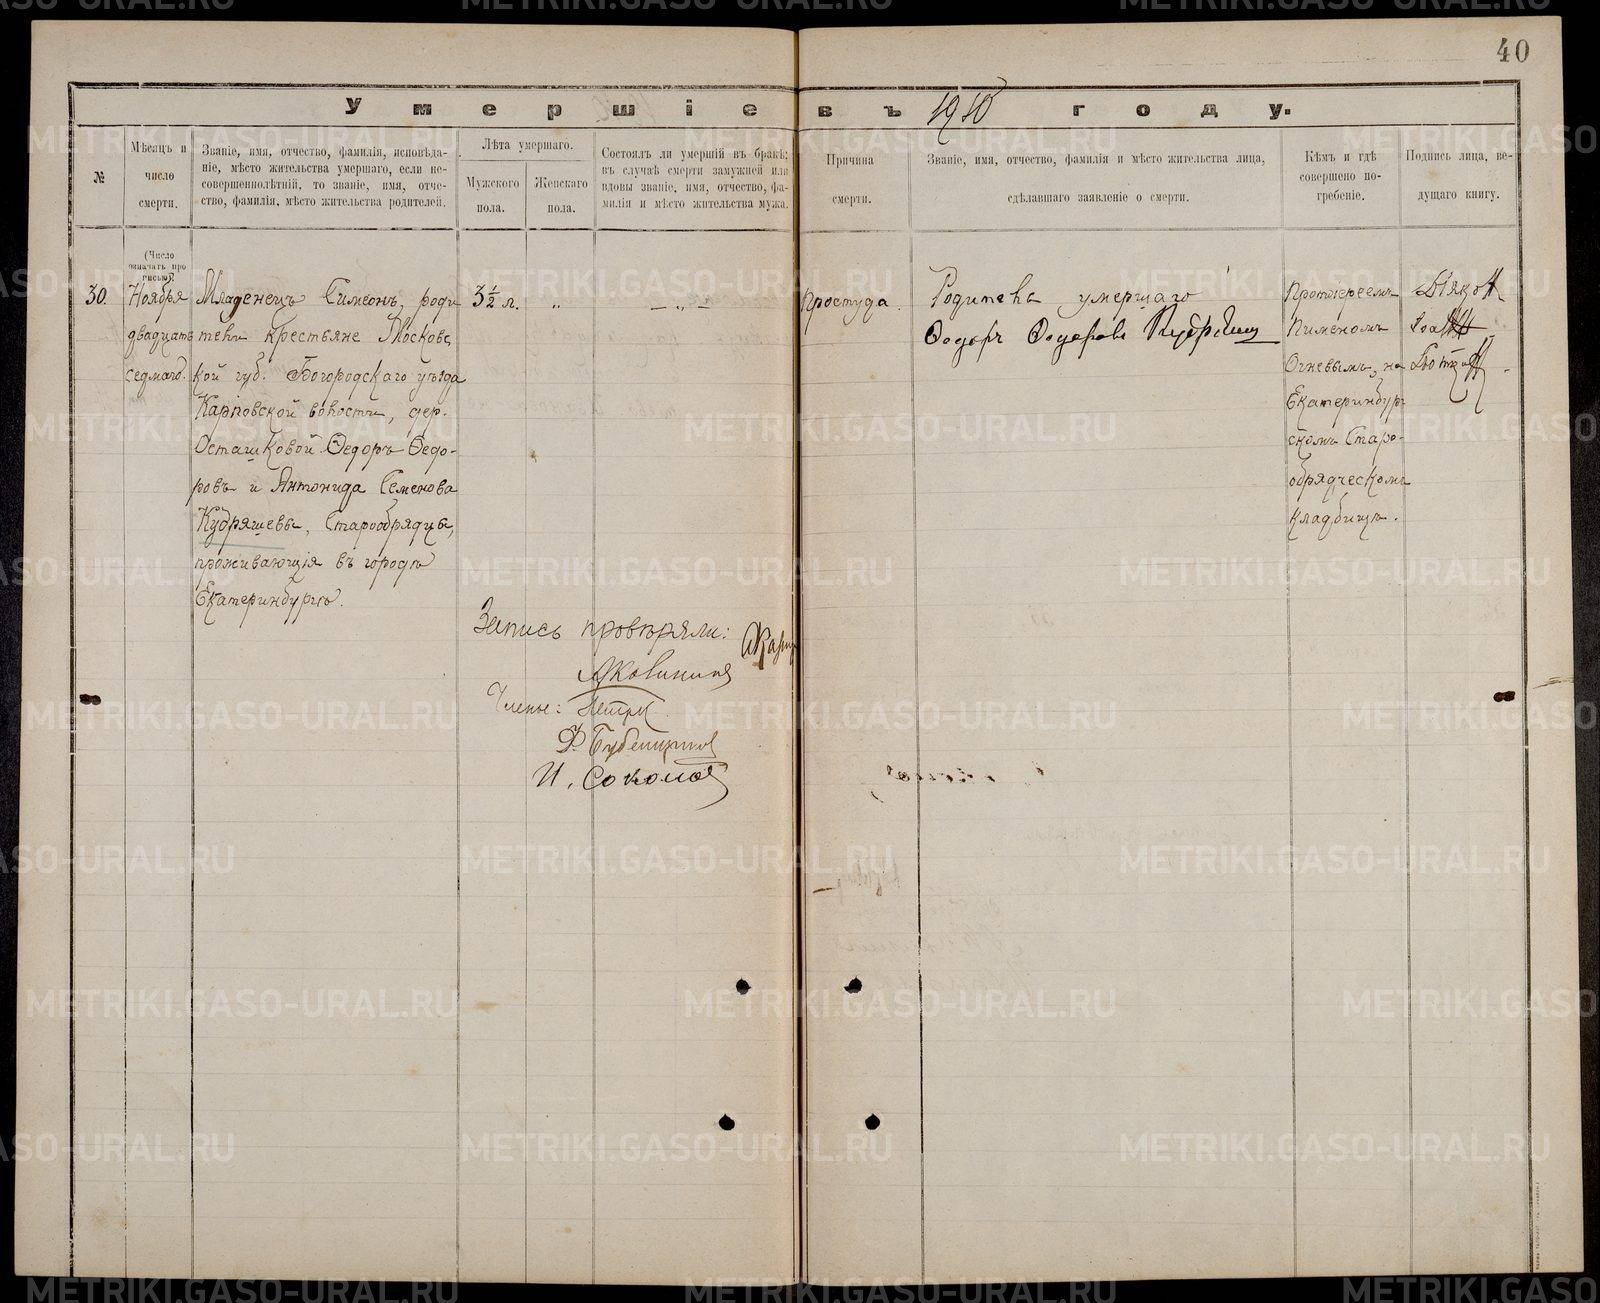 40
Умершіе въ 1910 году.
№
Мѣсяцъ и
число
смерти.
Званіе, имя, отчество, фамилія, исповѣда-
ніе, мѣсто жительства умершаго, если не-
совершеннолѣтній, то званіе, имя, отче-
ство, фамилія, мѣсто жительства родителей.
Лѣта умершаго.
Мужского
пола.
Женскаго
пола.
Состоялъ ли умершій въ бракѣ;
въ случаѣ смерти замужней или
вдовы званіе, имя, отчество, фа-
милія и мѣсто жительства мужа.
Причина
смерти.
Званіе, имя, отчество, фамилія и мѣсто жительства лица,
сдѣлавшаго заявленіе о смерти.
Кѣмъ и гдѣ
совершено по-
гребеніе.
Подпись лица, ве-
дущаго книгу.
(Число
означать про
писью).
30.
Ноября
двадцать
седмаго.
Младенецъ Симеонъ, роди
тели крестьяне Московс
кой губ. Богородскаго уѣзда
Карповской волости, дер.
Осташковой Ѳедоръ Ѳедо-
ровъ и Антонида Семенова
Кудряшевы, Старообрядцы,
проживающія въ городѣ
Екатеринбургѣ.
3½ л.
„
— „ —
Простуда.
Родитель умершаго
Ѳодоръ Ѳодоровъ Кудряшиш
Протоіереемъ
Пименомъ
Огневымъ, на
Екатеринбург
скомъ Старо-
обрядческомъ
кладбищѣ.
Дьякон
Запись провѣряли:
Яковинина
Члены: Петри
И. Соколов
METRIKI.GASO-URAL.RU